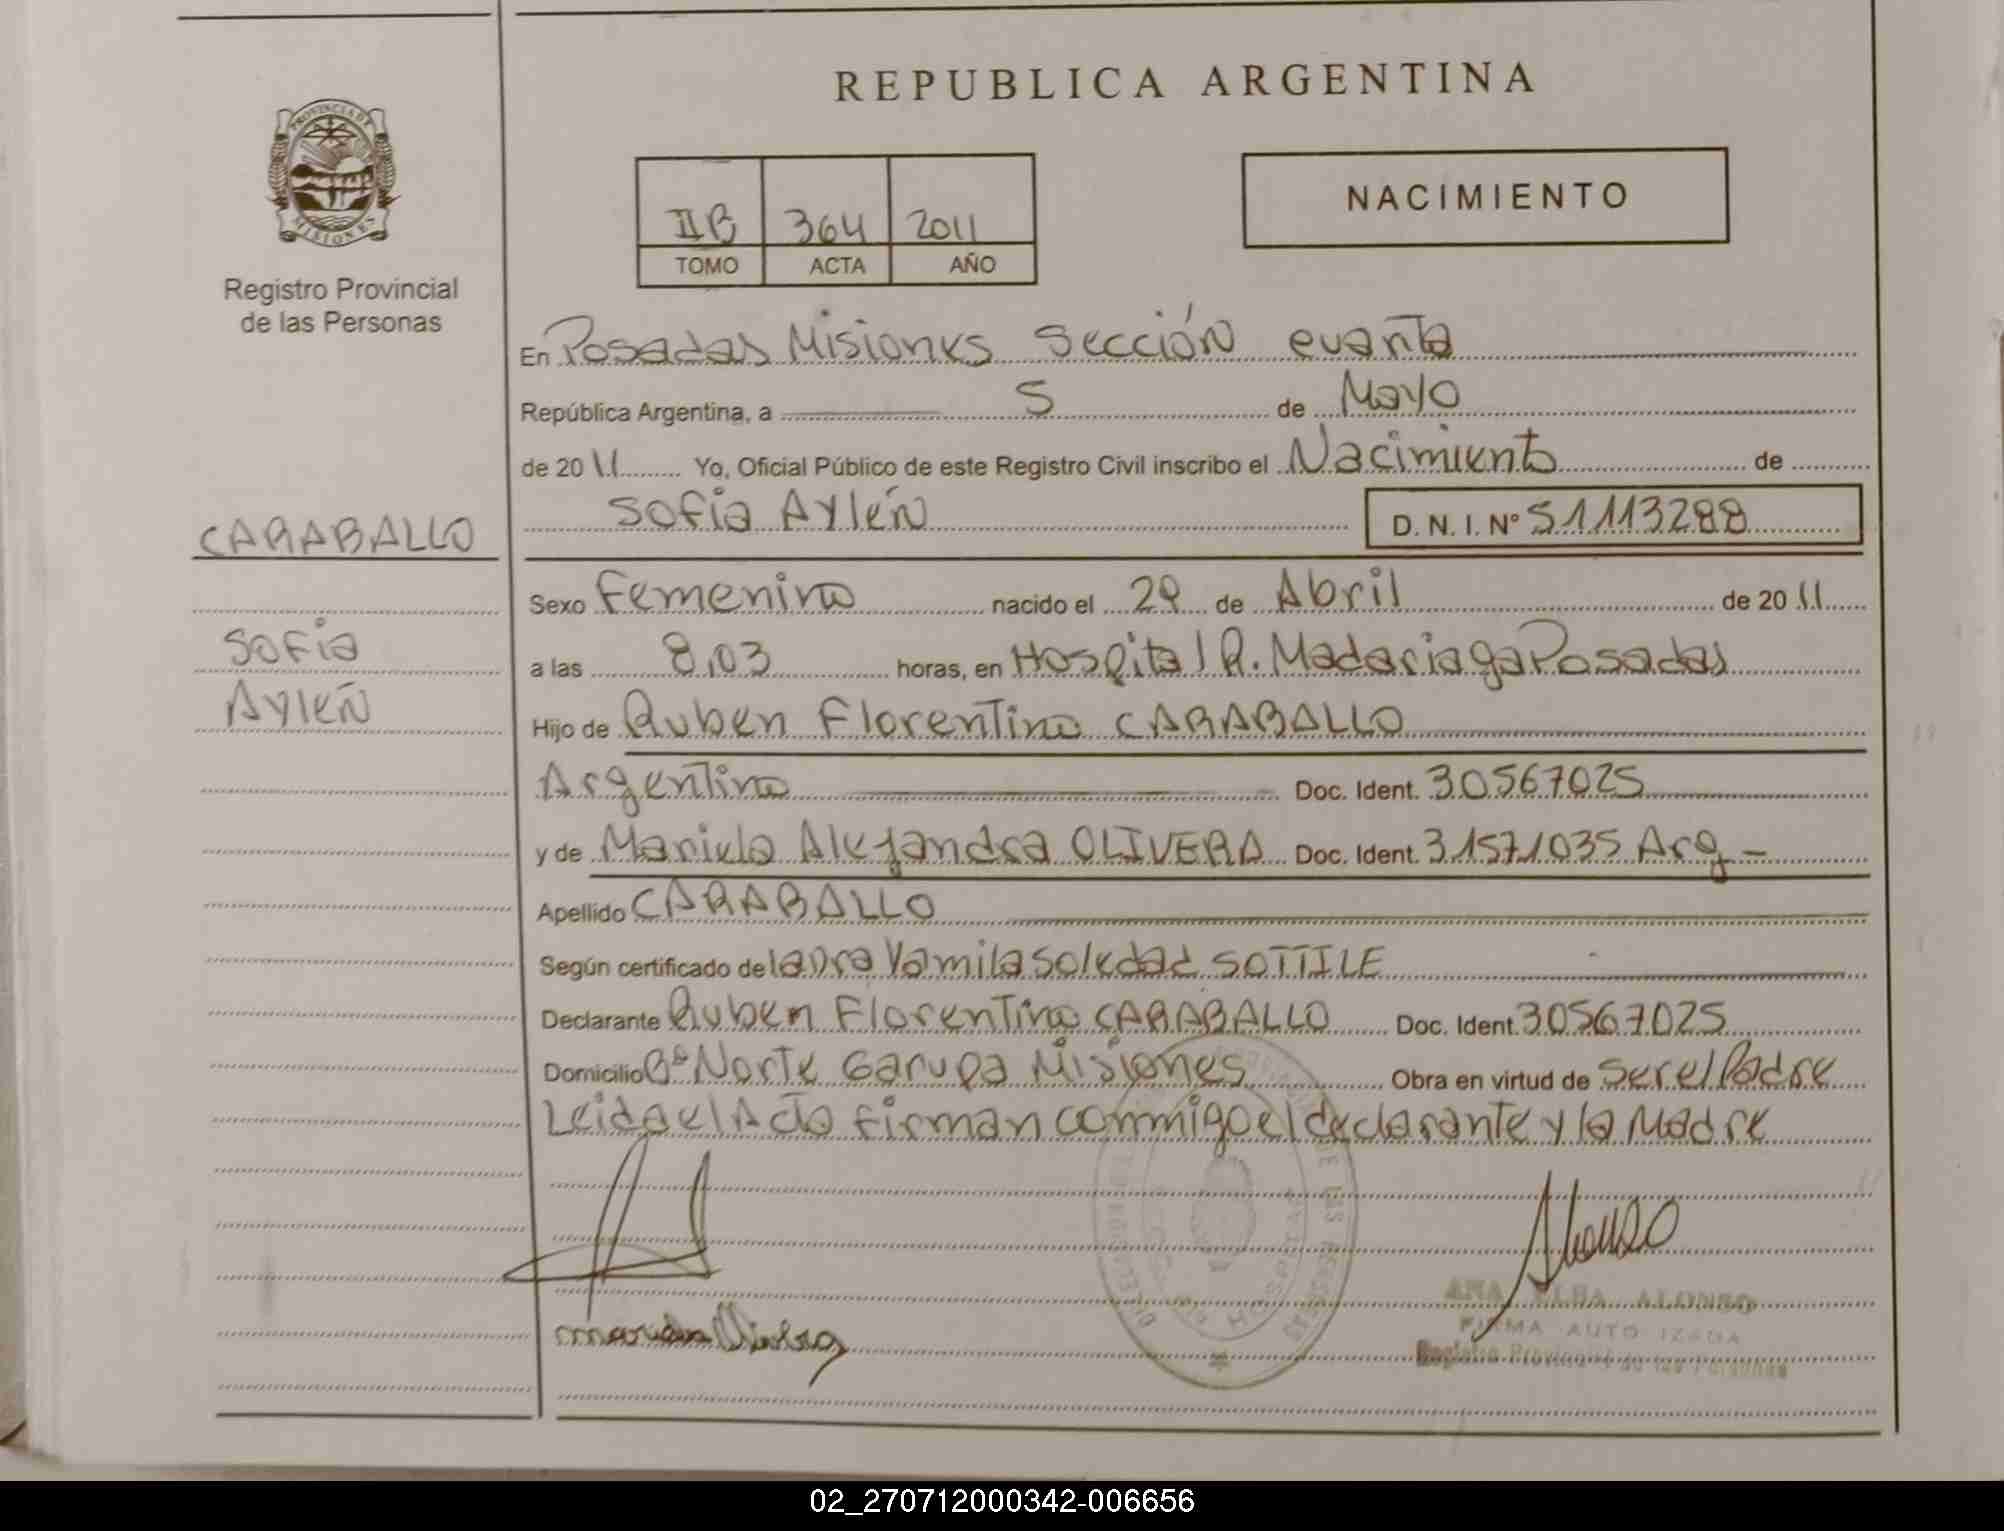 REPUBLICA ARGENTINA
PROVINCIA DE
MISIONES
Registro Provincial
de las Personas
IIB 364 2011
TOMO ACTA AÑO
NACIMIENTO
En Posadas Misiones Sección cuarta
República Argentina, a 5 de Mayo
de 2011 Yo, Oficial Público de este Registro Civil inscribo el Nacimiento de
Sofia Aylén D. N. I. Nº 51113288
CARABALLO
Sofia
Aylén
Sexo Femenino nacido el 29 de Abril de 2011
a las 8,03 horas, en Hospital R. Madariaga Posadas
Hijo de Ruben Florentino CARABALLO
Argentino Doc. Ident. 30567025
y de Mariela Alejandra OLIVERA Doc. Ident. 31571035 Arg -
Apellido CARABALLO
Según certificado de laura Yamila Soledad SOTTILE
Declarante Ruben Florentino CARABALLO Doc. Ident. 30567025
Domicilio Bº Norte Garupa Misiones Obra en virtud de Ser el Padre
Leida el Acta Firman conmigo el declarante y la Madre
Alonso
ANA ELBA ALONSO
FIRMA AUTO IZADA
Registro Provincial de las Personas
02_270712000342-006656